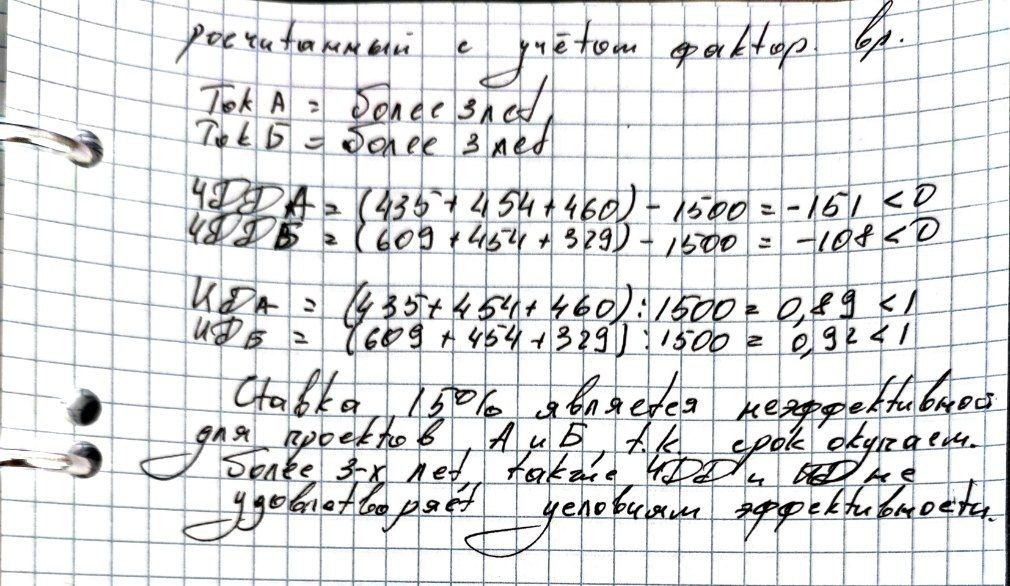 росчитанный с учётом фактор. вр.
Ток А = более 3 лет
Ток Б = более 3 лет
ЧДД А = (435 + 454 + 460) - 1500 = -151 < 0
ЧДД Б = (609 + 454 + 329) - 1500 = -108 < 0
ИД А = (435 + 454 + 460) : 1500 = 0,89 < 1
ИД Б = (609 + 454 + 329) : 1500 = 0,92 < 1
Ставка 15% является неэффективной
для проектов А и Б, т.к срок окупаем.
более 3-х лет, также ЧДД и ИД не
удовлетворяет условиям эффективности.